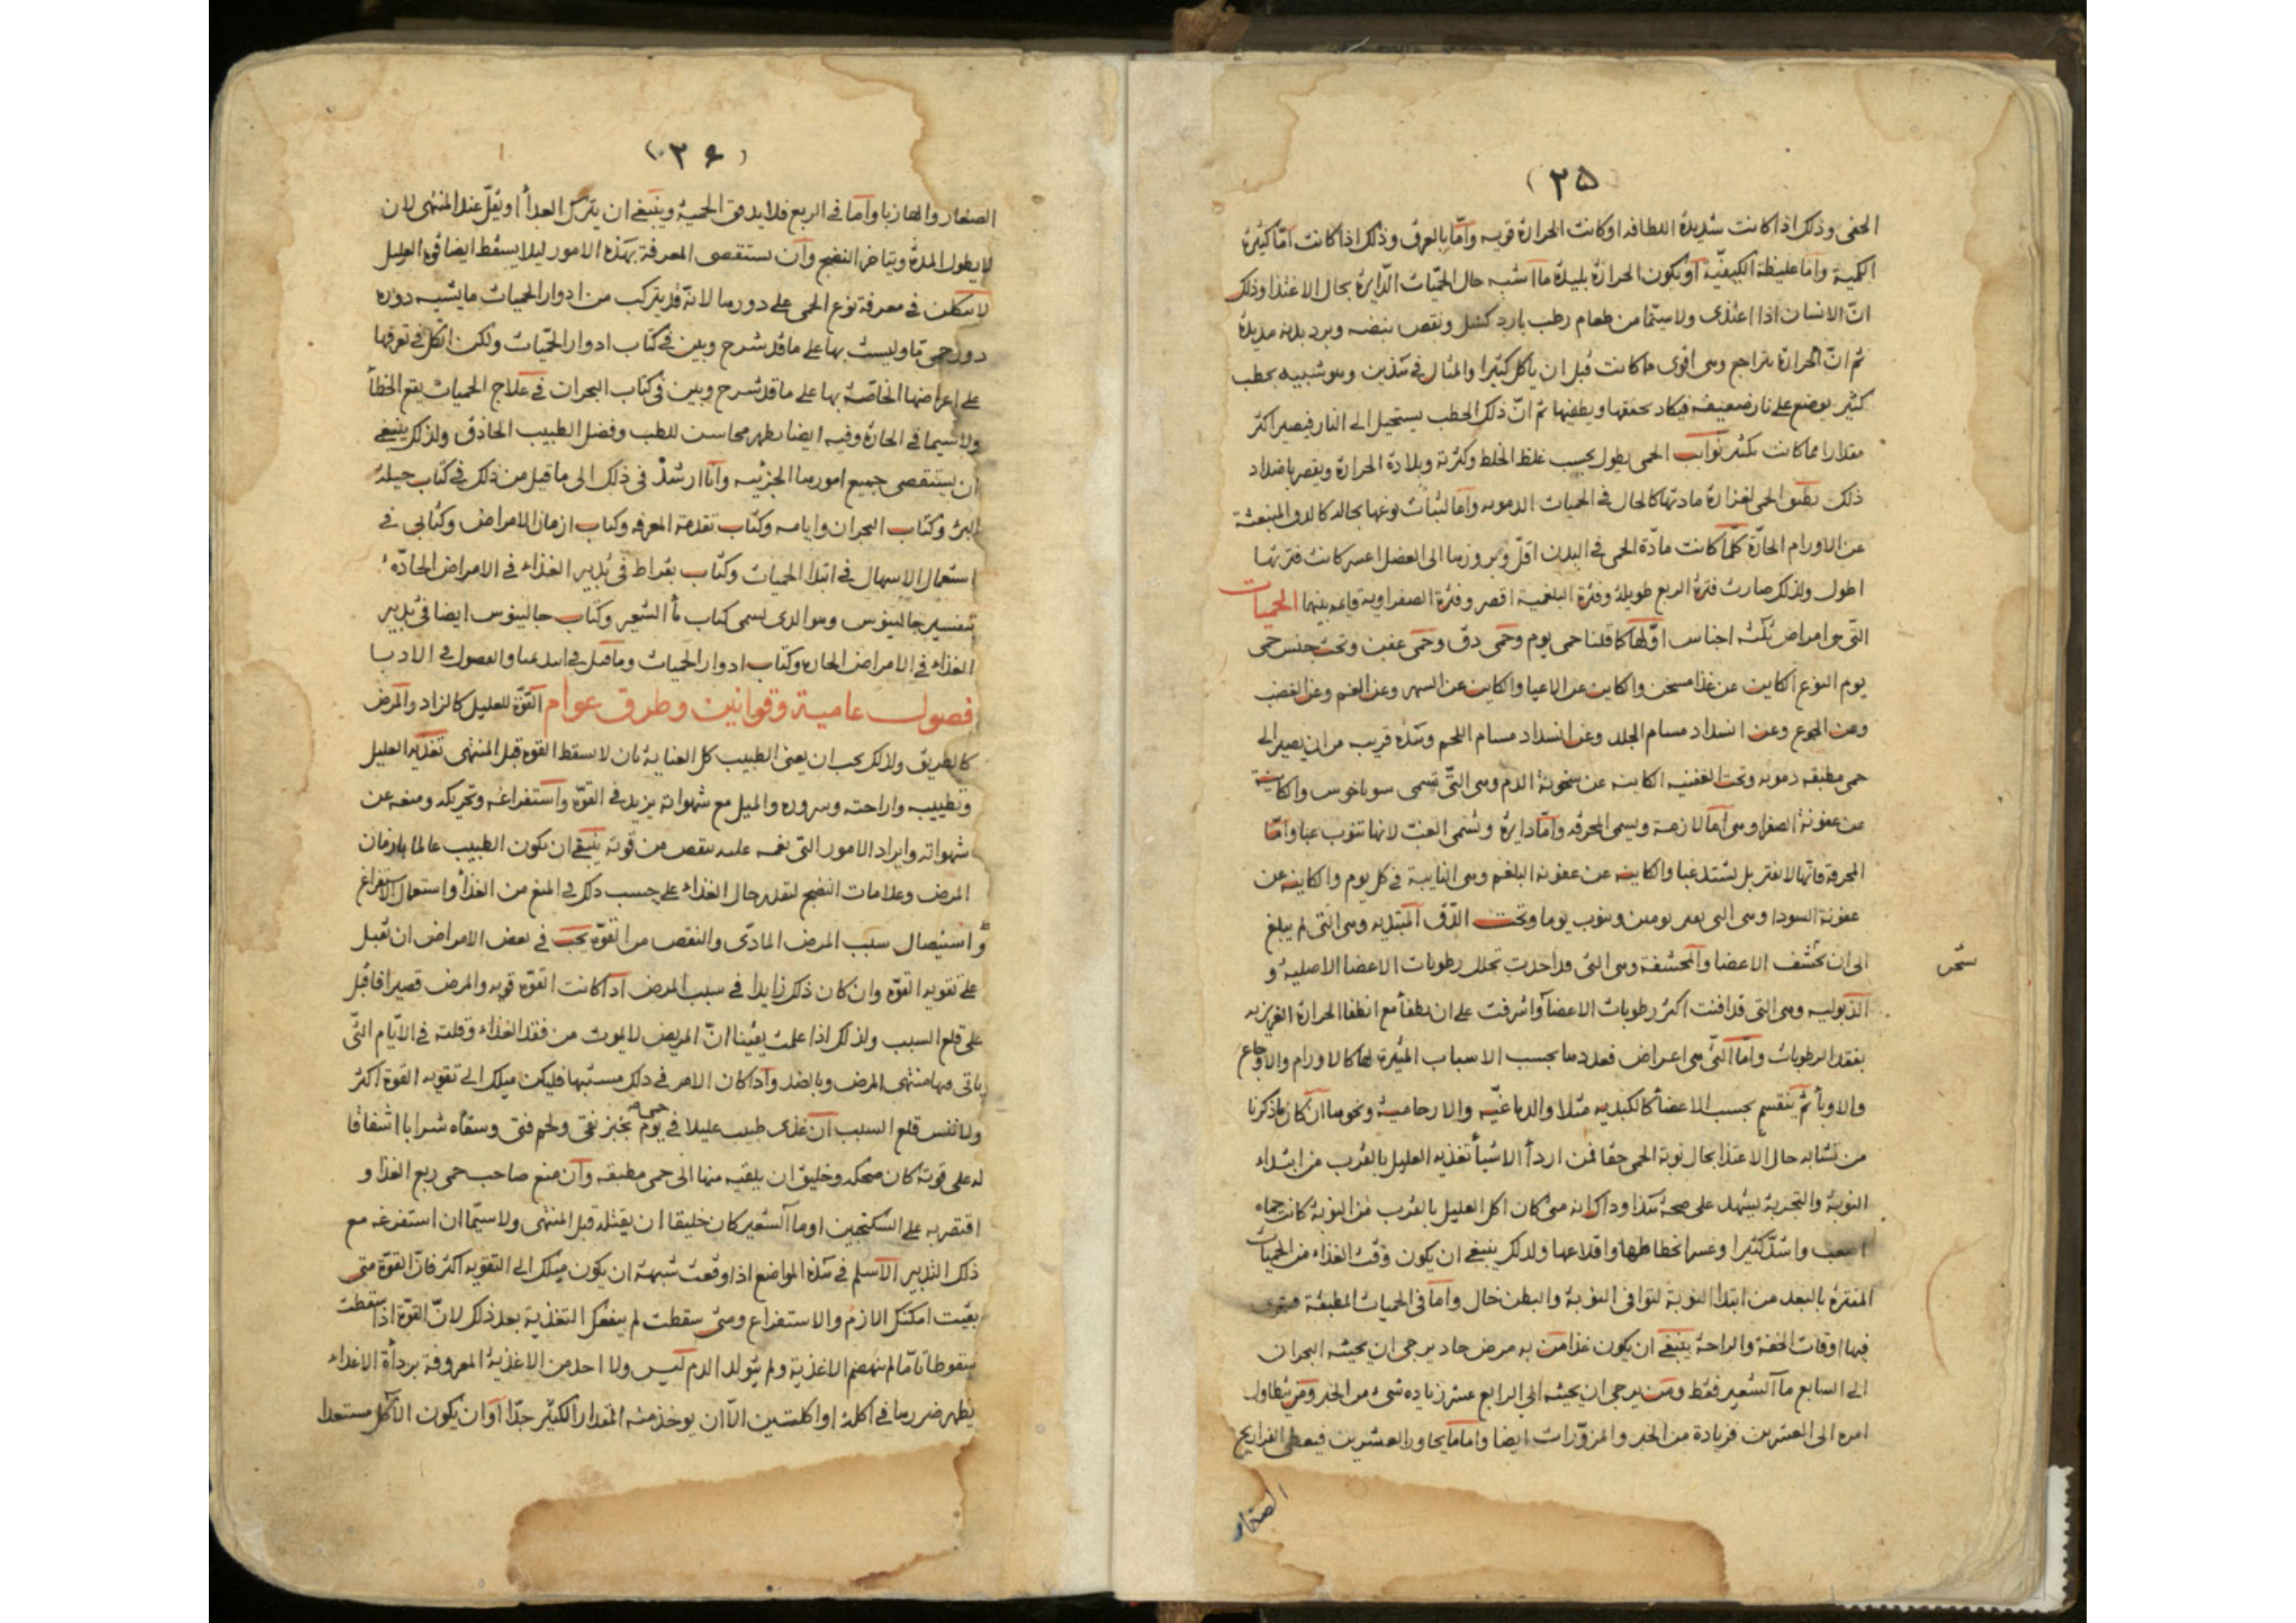 (٢٥)
الخفى وذلك اذا كانت شديدة اللطافه او كانت الحرارة قويه وامّا بالعرق وذلك اذا كانت امّا كثيرة
الكمية واما غليظة الكيفيّة او يكون الحرارة بليدة ما اشبه حال الحمّيات الدّايرة بحال الاغتذا وذلك
انّ الانسان اذا اغتذى ولا سيّما من طعام رطب بارد كسل ونقص نبضه وبرد بدنه مديدة
ثم انّ الحرارة تتراجع وهى اقوى مما كانت قبل ان ياكل كثيرا والمثال فى هذين وهو شبيه بحطب
كثير يوضع على نار ضعيفه فيكاد يخنقها ويطفيها ثم انّ ذلك الحطب يستحيل الى النار فيصير اكثر
مقدارا مما كانت بكثير نوايب الحمى يطول بحسب غلظ الخلط وكثرته وبلادة الحرارة ويقصر باضداد
ذلك يطبق الحمى لغزارة مادتها كالحال فى الحميات الدمويه واما لثبات نوعها بحاله كالدق المنبعثة
عن الاورام الحارّة كلّما كانت مادّة الحمى فى البدن اقلّ وبروزها الى العضل اعسر كانت فترتها
اطول ولذلك صارت فترة الربع طويلة وفترة البلغمية اقصر وفترة الصفراوية فيما بينهما الحميات
التّى هى امراض ثلثه اجناس اوّلها كما قلنا حمى يوم وحمّى دق وحمّى عفن وتحت جنس حمى
يوم النوع الكاين عن غذا مسخن والكاين عن الاعيا والكاين عن السهر وعن الغم وعن الغضب
وعن الجوع وعن انسداد مسام الجلد وعن انسداد مسام اللحم وهذه قريب من ان يصير الى
حمى مطبقه دمويه وتحت العفنيه الكاينه عن سخونة الدم وهى التّى تسمى سوناخوس والكاينة
عن عفونة الصفرا وهى امّا لازمة ويسمى المحرقه وامّا دايرة وتسمى الغب لانها تنوب غبا وامّا
المحرقة فانّها لا تفتر بل تشتد غبا والكاينه عن عفونه البلغم وهى النايبة فى كل يوم والكاينه عن
عفونة السودا وهى التى تغب يومين وتنوب يوما وتحت الدّق المبتديه وهى التى لم يبلغ
الى ان تحشف الاعضا والمحشفة وهى التى قد اخذت تحلل رطوبات الاعضا الاصلية و
الذبوليه وهى التى قد افنت اكثر رطوبات الاعضا واشرفت على ان يطفأ مع انطفا الحرارة الغريزيه
بفقد الرطوبات وامّا التّى هى اعراض فعددها بحسب الاسباب المثيرة لها كالاورام والاوجاع
والاوبأ ثمّ ينقسم بحسب الاعضأ كالكبديه مثلا والدماغيّه والارحامية ونحوها ان كان ما ذكرنا
من تشابه حال الاغتذا بحال نوبة الحمى حقا فمن اردأ الاشيأ تغذيه العليل بالقرب من ابتداء
النوبة والتجربة يشهد على صحة هذا وذاك انه متى كان اكل العليل بالقرب من النوبة كانت حماه
اصعب واشدّ كثيرا وعسر انحطاطها واقلاعها ولذلك ينبغى ان يكون وقت الغذاء من الحميات
المفترة بالبعد من ابتدا النوبة لتوافى النوبة والبطن خال واما فى الحميات المطبقة
فيها اوقات الخفة والراحة ينبغى ان يكون غذا من به مرض حاد يرجى ان يجيئه البحران
الى السابع ما الشعير فقط ومن يرجى ان يجيئه الى الرابع عشر زياده شى من الخبز ومن يتطاول
امره الى العشرين فزيادة من الخبز والمزوّرات ايضا واما ما يجاوز العشرين فيعطى الفراريج
الصغار
(٢٦)
الصغار والهازبا واما فى الربع فلا يدقق الحمية وينبغى ان يترك الغدا او يقلّ عند المنتهى لان
لا يطول المدة ويتاخر النضج وان يستقصى المعرفة بهذه الامور ليلا يسقط ايضا قوة العليل
لا تتكلن فى معرفة نوع الحمى على دورها لانّه قد يتركب من ادوار الحميات ما يشبه دوره
دور حمى مّا وليست بها على ما قد شرح وبين فى كتاب ادوار الحمّيات ولكن اتّكل فى تعرفها
على اعراضها الخاصّة بها على ما قد شرح وبين فى كتاب البحران فى علاج الحميات يقع الخطأ
ولا سيما فى الحارة وفيه ايضا يظهر محاسن للطب وفضل الطبيب الحاذق ولذلك ينبغى
ان يستقصى جميع امورها الجزئيه وانا ارشد فى ذلك الى ما قيل من ذلك فى كتاب حيلة
البرئ وكتاب البحران وايامه وكتاب تقدمة المعرفه وكتاب ازمان الامراض وكتابى فى
استعمال الاسهال فى ابتدا الحميات وكتاب بقراط فى تدبير الغذاء فى الامراض الحادّة
بتفسير جالينوس وهو الذى يسمى كتاب مأ الشعير وكتاب جالينوس ايضا فى تدبير
الغذاء فى الامراض الحاده وكتاب ادوار الحميات وما قيل فى ابيديميا والفصول فى الادبا
فصول عامية وقوانين وطرق عوام القوّة للعليل كالزاد والمرض
كالطريق ولذلك يجب ان يعنى الطبيب كل العناية بان لا يسقط القوه قبل المنتهى تغذيه العليل
وتطييبه واراحته وسروره والميل مع شهواته يزيد فى القوّة واستفراغه وتحريكه ومنعه عن
شهواته وايراد الامور التى تغمه عليه ينقص من قوته ينبغى ان يكون الطبيب عالما بازمان
المرض وعلامات النضج لتقدير حال الغذاء على حسب ذلك فى المنع من الغذأ واستعمال الاستفراغ
و استيصال سبب المرض المادّى والنقص من القوّة يجب فى بعض الامراض ان تقبل
على تقويه القوّة وان كان ذلك زايدا فى سبب المرض اذا كانت القوّة قويه والمرض قصيرا فاقبل
على قلع السبب ولذلك اذا علمت يقينا انّ المريض لا يموت من فقد الغذاء وقلته فى الايّام التّى
ياتى فيها منتهى المرض وبالضد واذا كان الامر فى ذلك مشتبها فليكن ميلك الى تقويه القوة اكثر
ولا تنس قلع السبب ان غذى طبيب عليلا فى يوم حمى بخبز نقى ولحم فتى وسقاه شرابا اشفاقا
له على قوته كان ضحكه وخليق ان يلقيه منها الى حمى مطبقه وان منع صاحب حمى ربع الغذا و
اقتصر به على السكنجبين او ما الشعير كان خليقا ان يقتله قبل المنتهى ولا سيّما ان استفرغه مع
ذلك التدبير الاسلم فى هذه المواضع اذا وقعت شبهة ان يكون ميلك الى التقويه اكثر فانّ القوّة متى
بقيت امكنك الازم والاستفراغ ومتى سقطت لم ينفعك التغذية بعد ذلك لانّ القوّة اذا سقطت
سقوطا تامّا لم ينهضم الاغذية ولم يتولد الدم ليس ولا احد من الاغذية المعروفة برداة الاغذاء
يظهر ضررها فى اكلة او اكلتين الّا ان يوخذ منه المقدار الكثير جدّا او ان يكون الآكل مستعدا